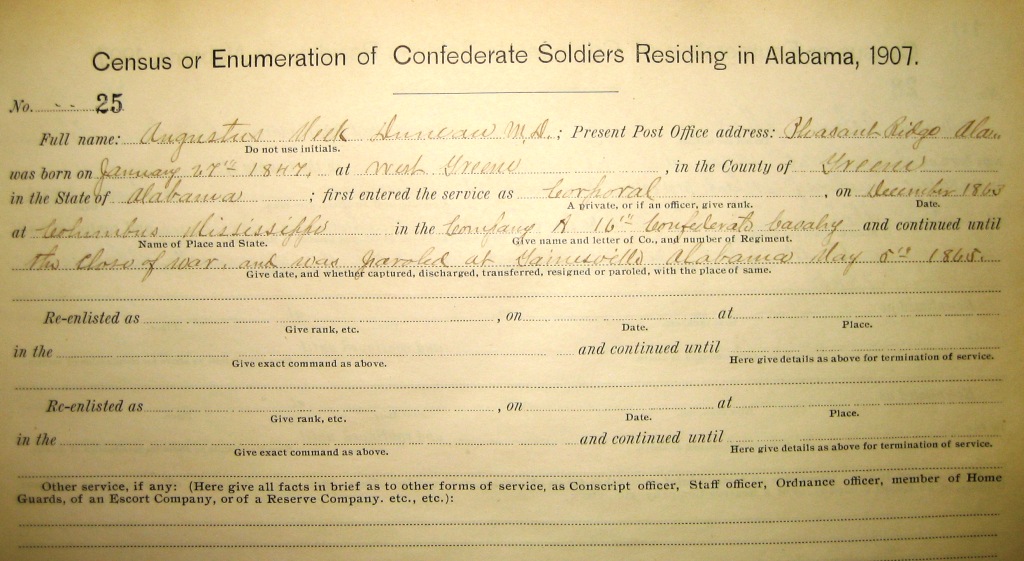 Census or Enumeration of Confederate Soldiers Residing in Alabama, 1907.
No. 25
Full name: Augustus Meek Duncan M.D.; Present Post Office address: Pleasant Ridge Ala
Do not use initials.
was born on January 27th 1847. at West Greene, in the County of Greene
in the State of Alabama; first entered the service as Corporal, on December 1863
A private, or if an officer, give rank. Date.
at Columbus Mississippi in the Company A 16th Confederate Cavalry and continued until
Name of Place and State. Give name and letter of Co., and number of Regiment.
the close of war. and was paroled at Gainesville Alabama May 5th 1865.
Give date, and whether captured, discharged, transferred, resigned or paroled, with the place of same.
Re-enlisted as, on at
Give rank, etc. Date. Place.
in the and continued until
Give exact command as above. Here give details as above for termination of service.
Re-enlisted as, on at
Give rank, etc. Date. Place.
in the and continued until
Give exact command as above. Here give details as above for termination of service.
Other service, if any: (Here give all facts in brief as to other forms of service, as Conscript officer, Staff officer, Ordnance officer, member of Home
Guards, of an Escort Company, or of a Reserve Company. etc., etc.):